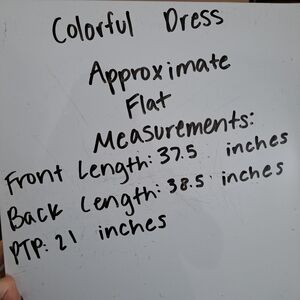 Colorful Dress
Approximate
Flat
Measurements:
Front Length: 37.5 inches
Back Length: 38.5 inches
PTP: 21 inches